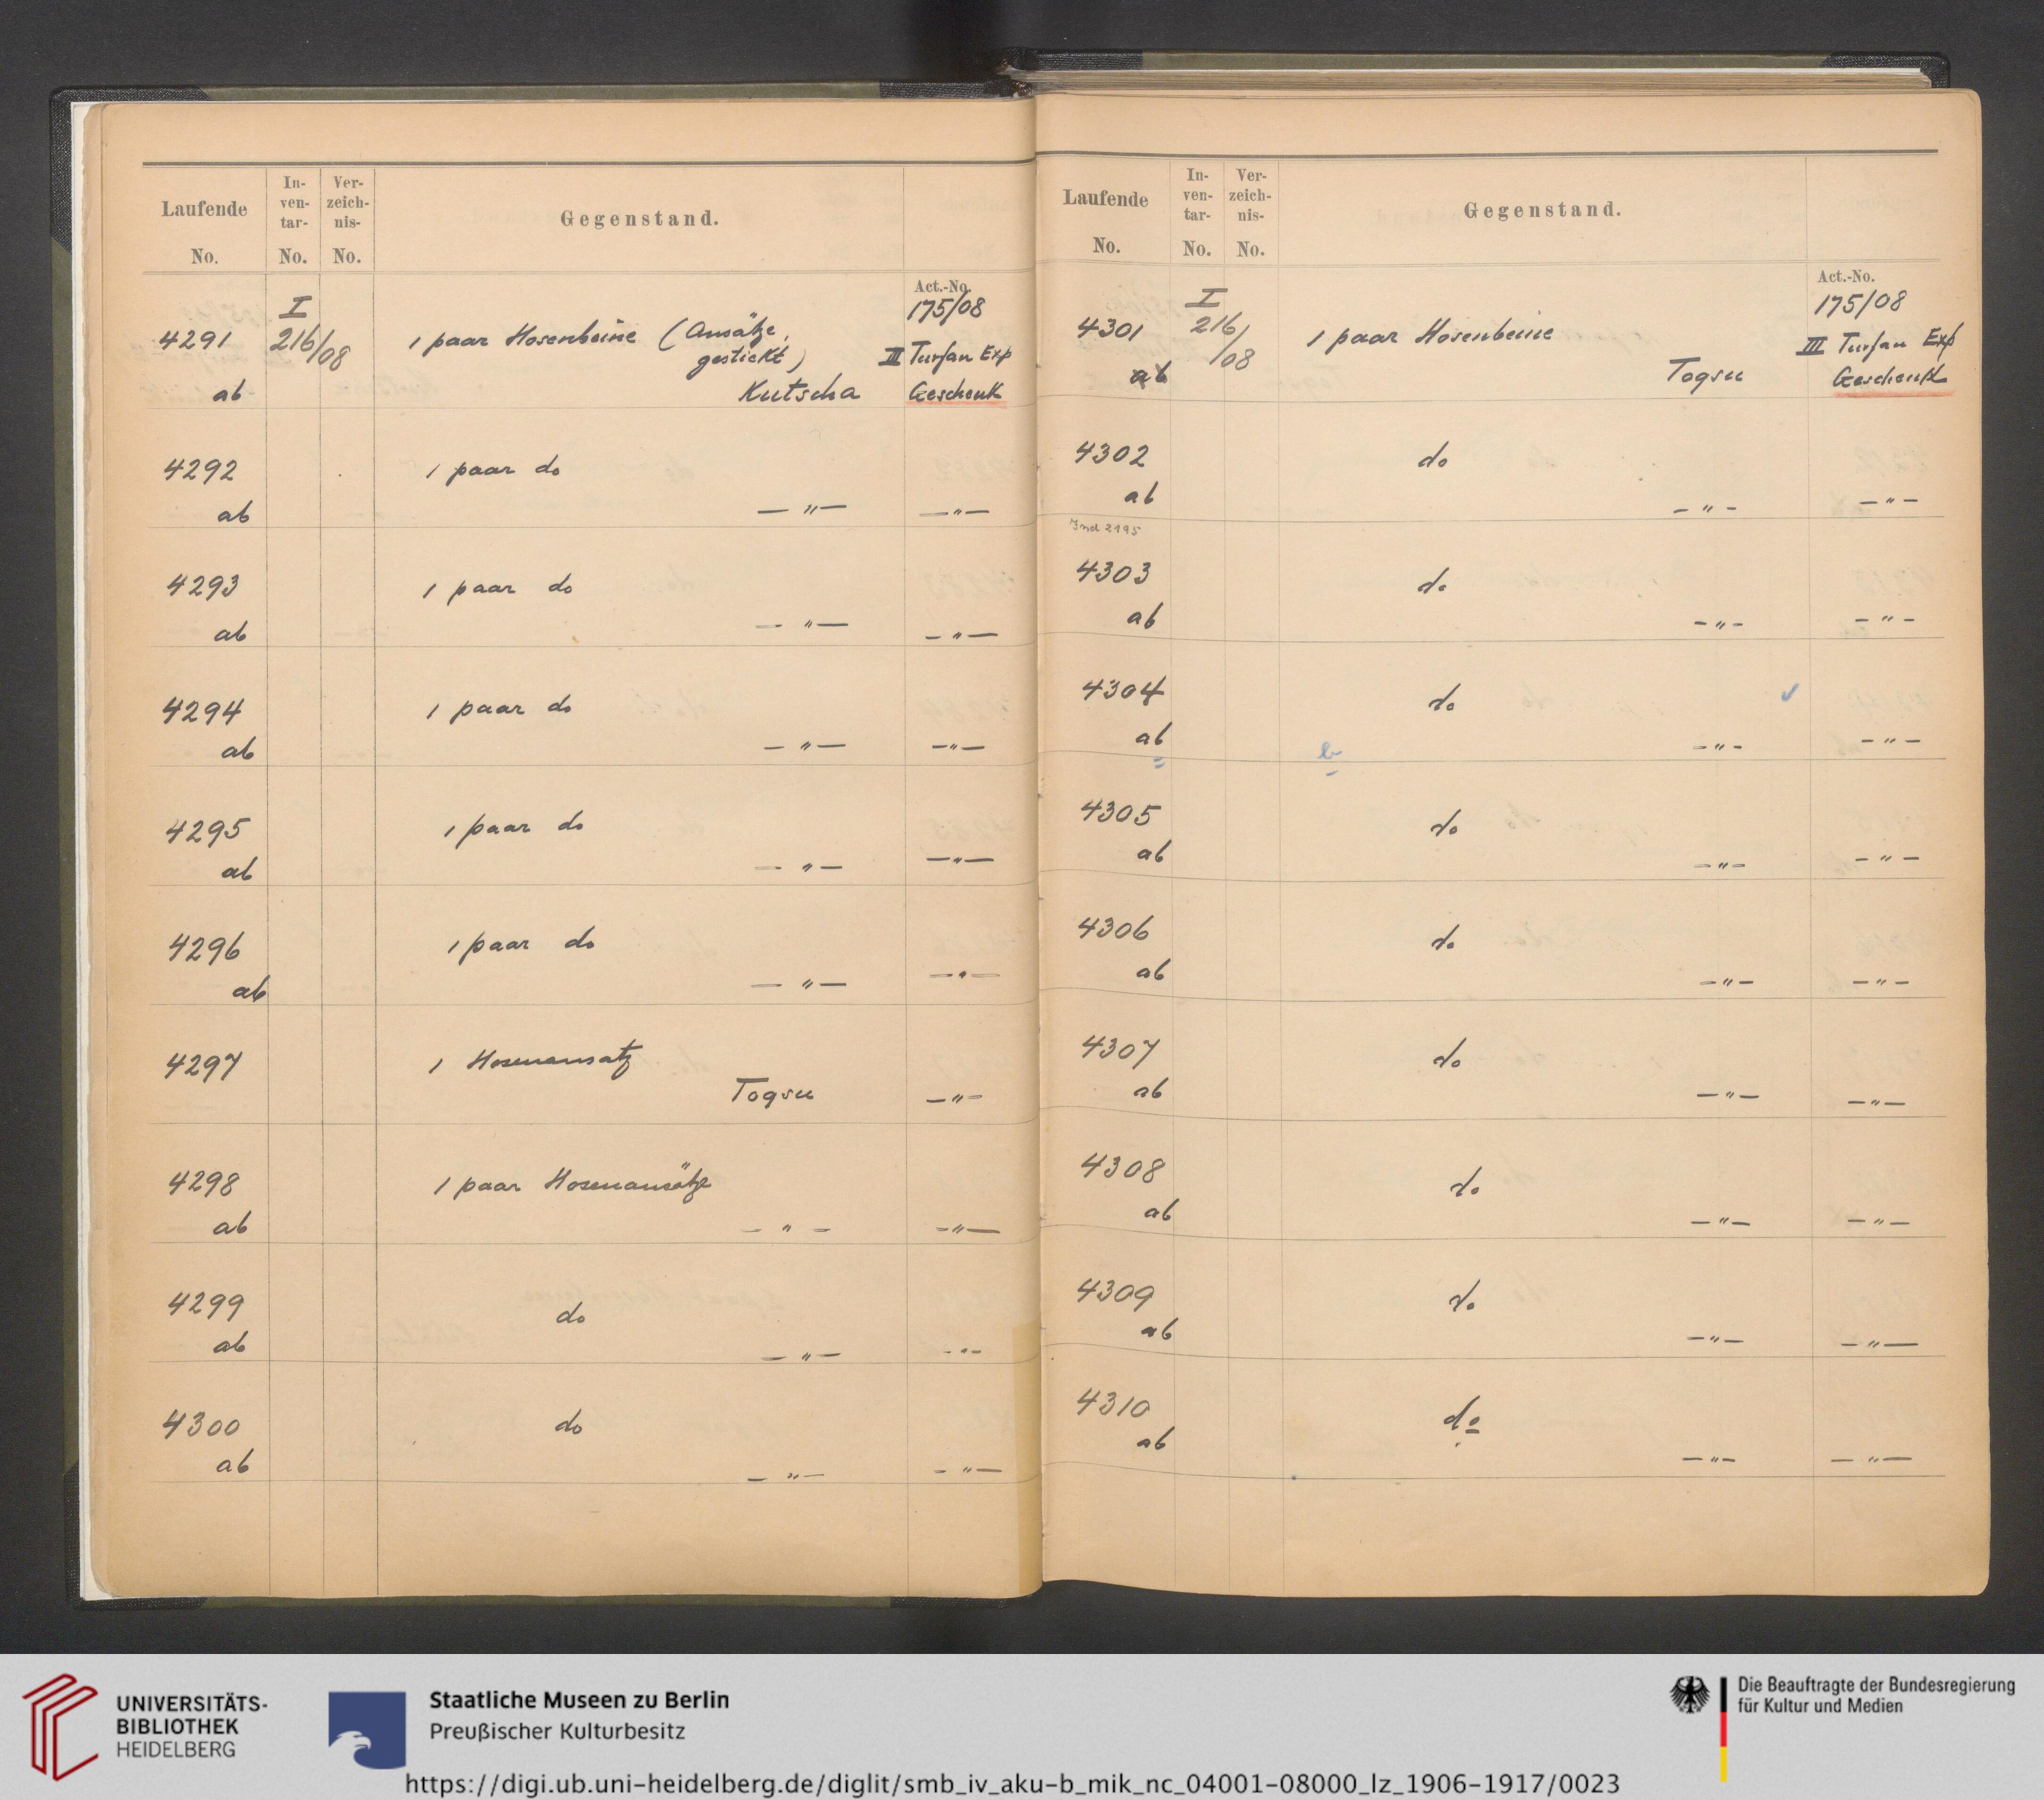 Laufende No.
In-ven-tar-No.
Ver-zeich-nis-No.
Gegenstand.
Act.-No.
I
175/08
4291 216/08 1 paar Hosenbeine (Ansätze,
gestickt) III Turfan Exp
ab Kutscha Geschenk
4292 1 paar do
ab — " — — " —
4293 1 paar do
ab — " — — " —
4294 1 paar do
ab — " — — " —
4295 1 paar do
ab — " — — " —
4296 1 paar do
ab — " — — " —
4297 1 Hosenansatz
Togsu — " —
4298 1 paar Hosenansätze
ab — " — — " —
4299 do
ab — " — — " —
4300 do
ab — " — — " —
Laufende No.
In-ven-tar-No.
Ver-zeich-nis-No.
Gegenstand.
Act.-No.
I
175/08
4301 216/08 1 paar Hosenbeine III Turfan Exp
ab Togsu Geschenk
4302 do
ab — " — — " —
Ind 2195
4303 do
ab — " — — " —
4304 do ✓
ab b — " — — " —
4305 do
ab — " — — " —
4306 do
ab — " — — " —
4307 do
ab — " — — " —
4308 do
ab — " — — " —
4309 do
ab — " — — " —
4310 do
ab — " — — " —
UNIVERSITÄTS-
BIBLIOTHEK
HEIDELBERG
Staatliche Museen zu Berlin
Preußischer Kulturbesitz
Die Beauftragte der Bundesregierung
für Kultur und Medien
https://digi.ub.uni-heidelberg.de/diglit/smb_iv_aku-b_mik_nc_04001-08000_lz_1906-1917/0023